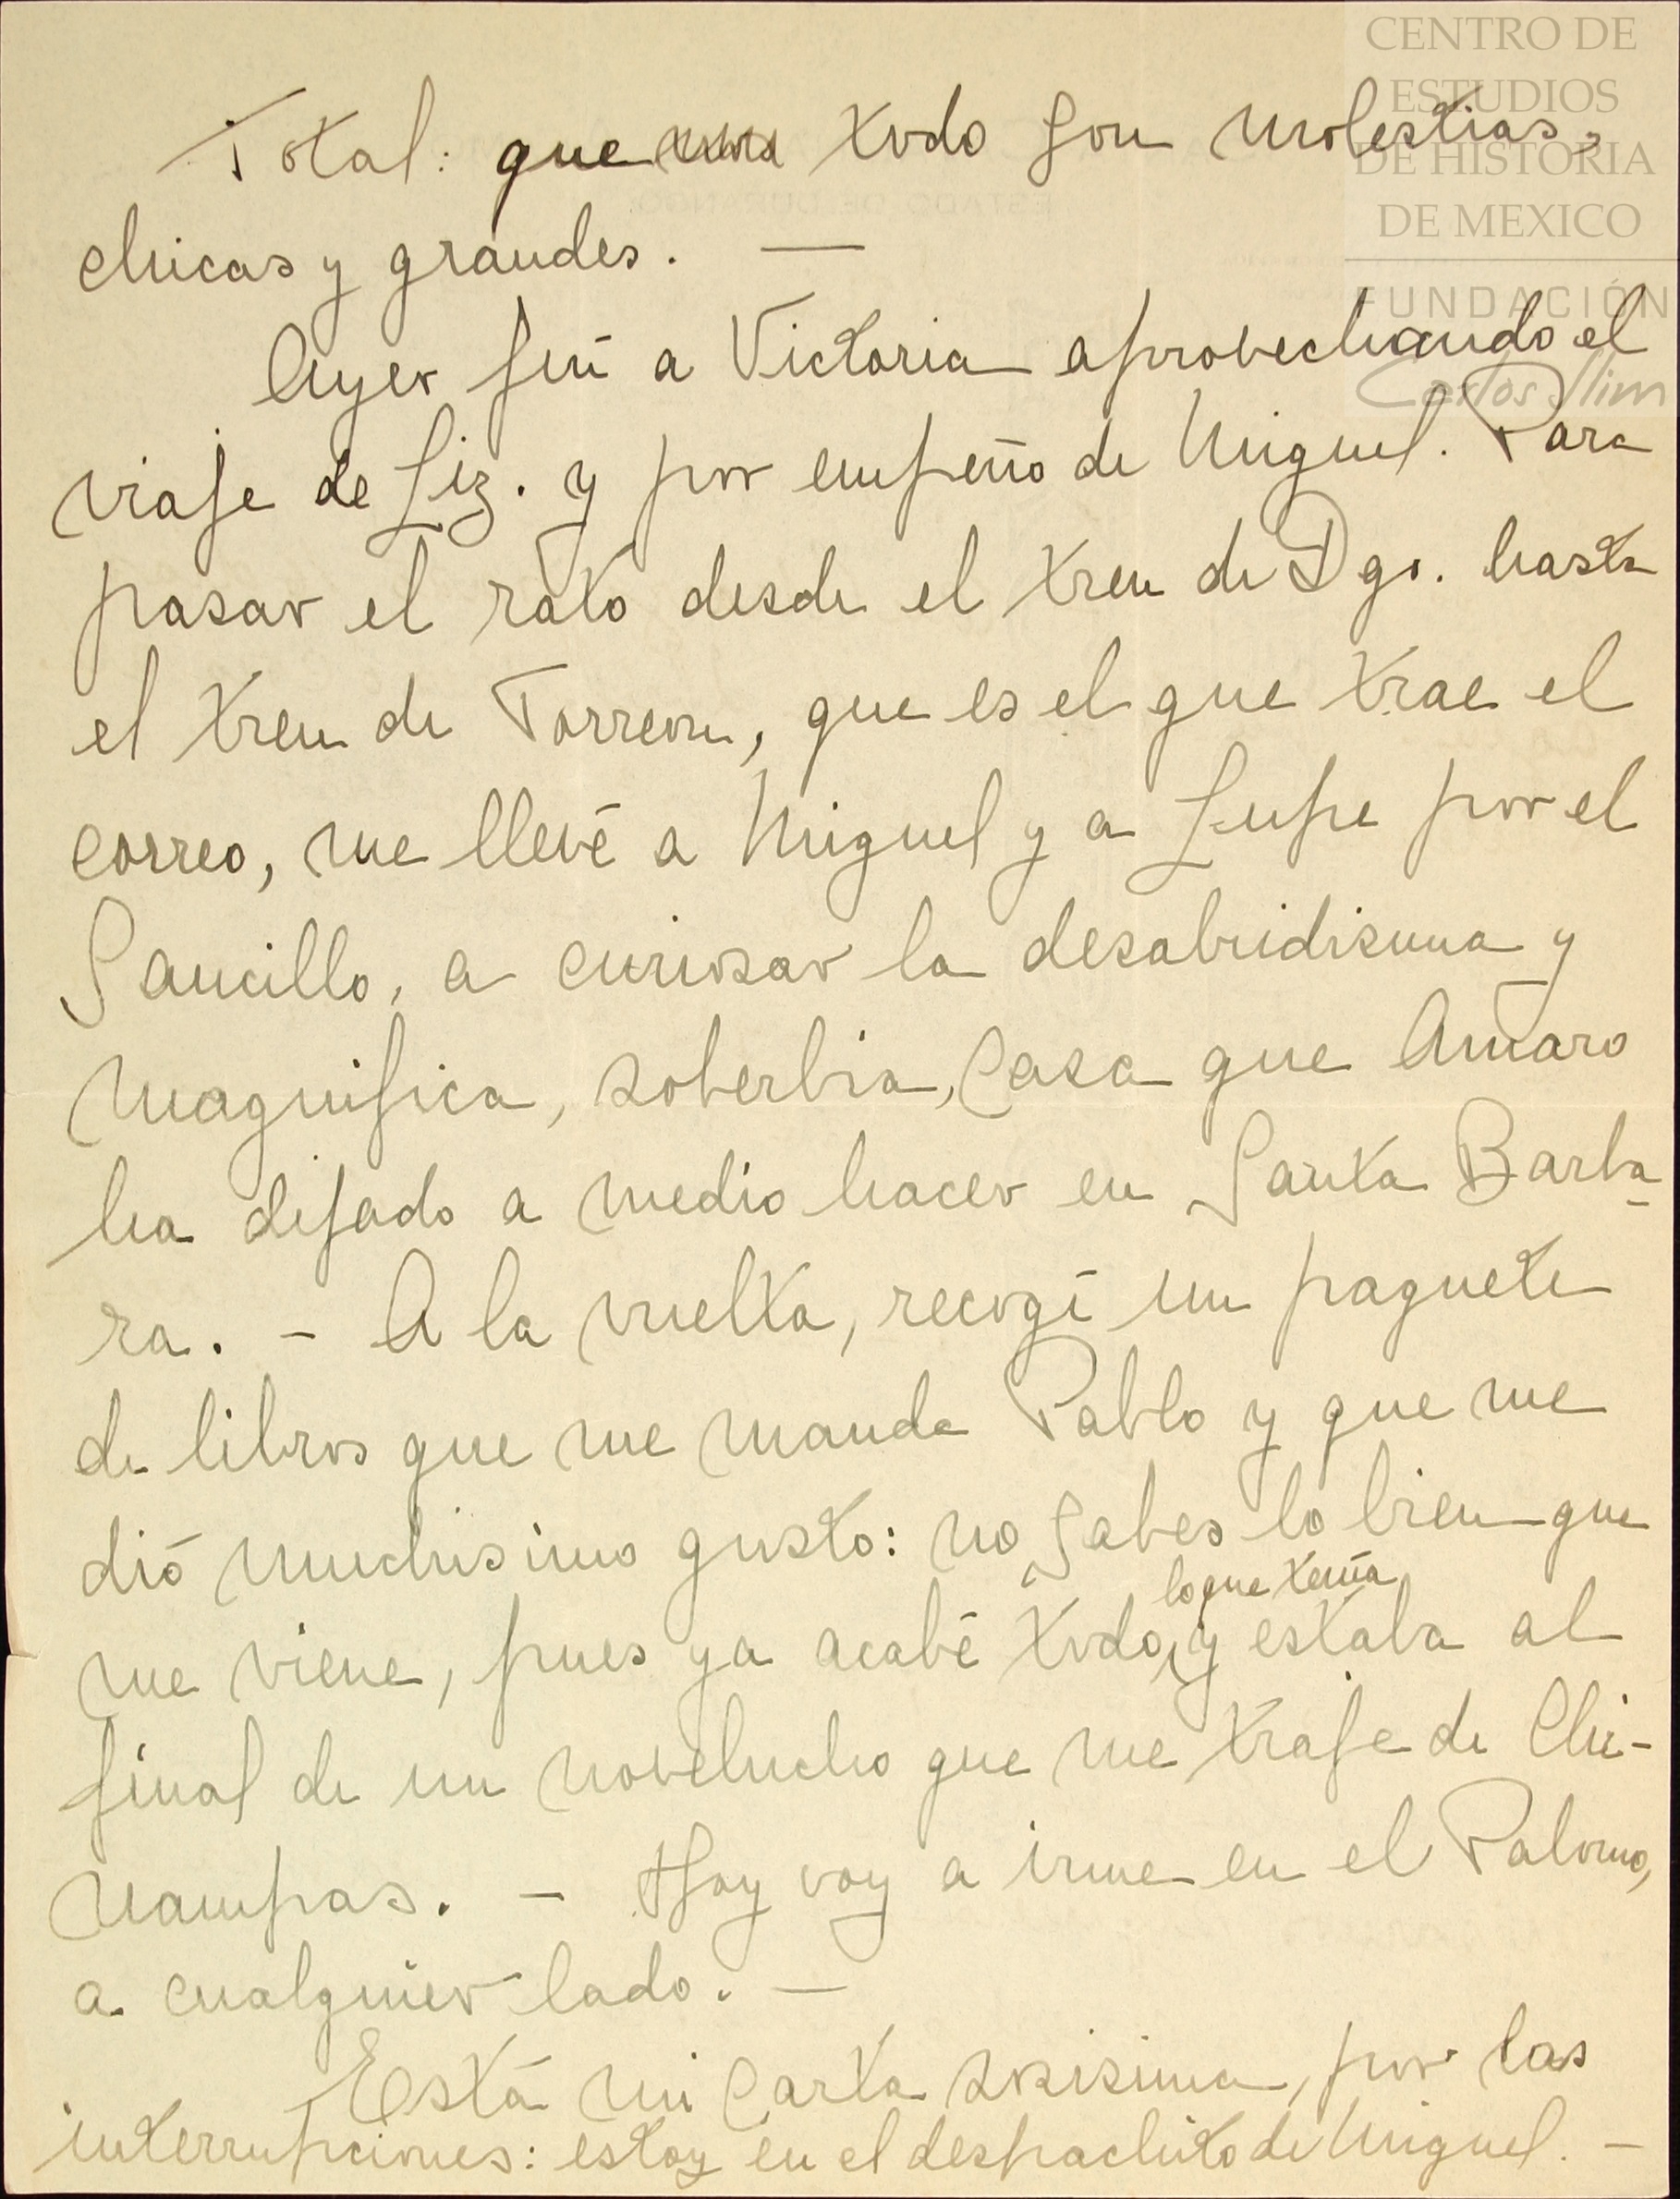 CENTRO DE
ESTUDIOS
DE HISTORIA
DE MEXICO
FUNDACIÓN
Carlos Slim
ESTADO DE DURANGO
Total: que todo son molestias,
chicas y grandes. —
Ayer fuí a Victoria aprovechando el
viaje de Liz. y por empeño de Miguel. Para
pasar el rato desde el tren de Dgo. hasta
el tren de Torreon, que es el que trae el
correo, me llevé a Miguel y a Lupe por el
Saucillo, a curiosar la desabridisima y
magnifica, soberbia, casa que Amaro
ha dejado a medio hacer en Santa Barba-
ra. - A la vuelta, recogí un paquete
de libros que me manda Pablo y que me
dió muchisimo gusto: no sabes lo bien que
me viene, pues ya acabé todo lo que tenía y estaba al
final de un novelucho que me traje de Chi-
nampas. - Hoy voy a irme en el Palomo,
a cualquier lado. —
Está mi carta sosisima, por las
interrupciones: estoy en el despachito de Miguel. -